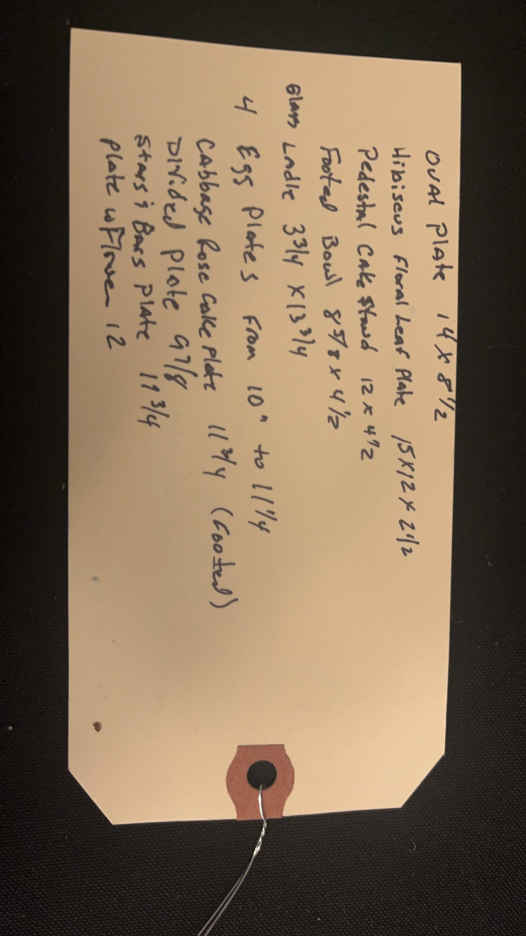 Oval Plate 14 x 8 1/2
Hibiscus Floral Leaf Plate 15x12 x 2 1/2
Pedestal Cake Stand 12 x 4 1/2
Footed Bowl 8 5/8 x 4 1/2
Glass Ladle 3 3/4 x 13 3/4
4 Egg Plates From 10" to 11 1/4
Cabbage Rose Cake Plate 11 3/4 (Footed)
Divided Plate 9 7/8
Stars & Bars Plate 11 3/4
Plate w Flower 12